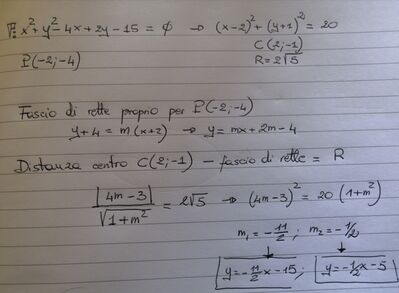 Γ: x²+y²-4x+2y-15=∅ → (x-2)²+(y+1)²=20
P(-2;-4) C(2;-1)
R=2√5
Fascio di rette proprio per P(-2;-4)
y+4 = m(x+2) → y=mx+2m-4
Distanza centro C(2;-1) - fascio di rette = R
|4m-3|/√(1+m²) = 2√5 → (4m-3)² = 20(1+m²)
m₁=-11/2 ; m₂=-1/2
↓ ↓
y=-11/2x-15 ; y=-1/2x-5